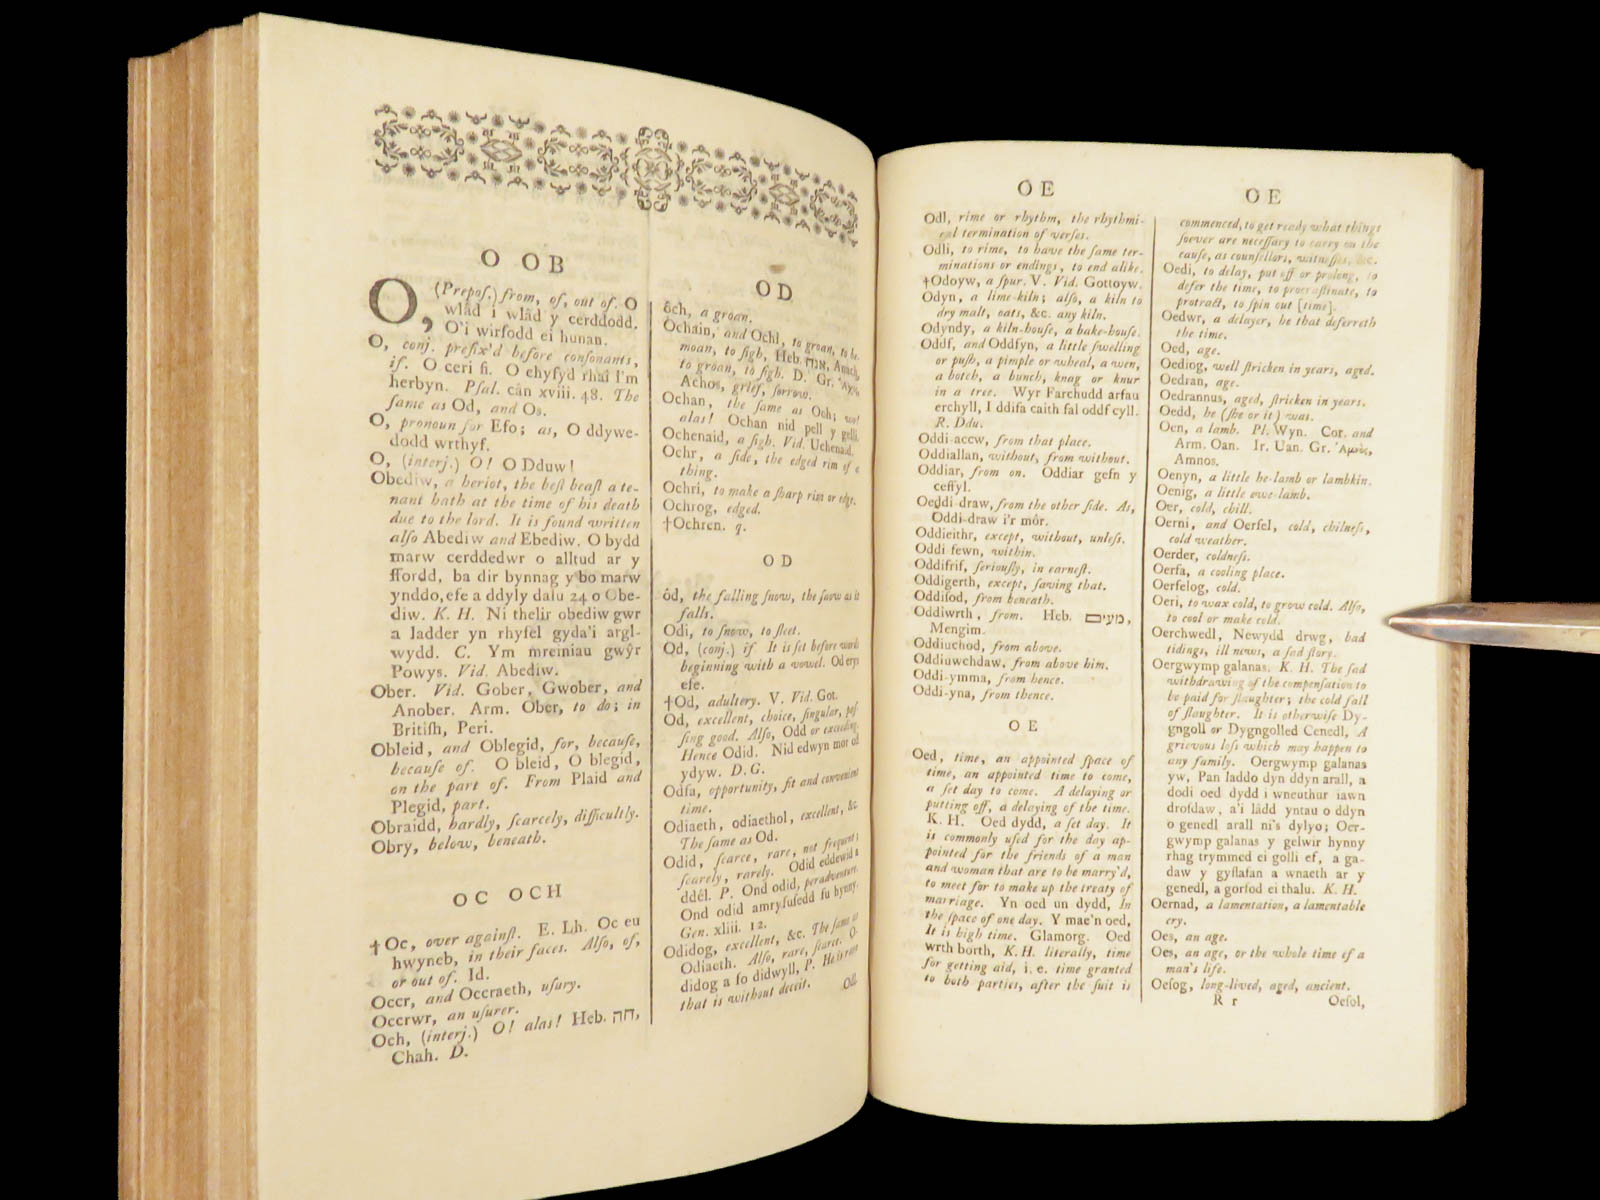 O OB
O, (Prepoſ.) from, of, out of. O
wlâd i wlâd y cerddodd.
O'i wirfodd ei hunan.
O, conj. prefix'd before conſonants,
if. O ceri fi. O chyfyd rhai I'm
herbyn. Pſal. cân xviii. 48. The
ſame as Od, and Os.
O, pronoun for Efo; as, O ddywe-
dodd wrthyf.
O, (interj.) O! O Dduw!
Obediw, a heriot, the beſt beaſt a te-
nant hath at the time of his death
due to the lord. It is found written
alſo Abediw and Ebediw. O bydd
marw cerddedwr o alltud ar y
ffordd, ba dir bynnag y bo marw
ynddo, efe a ddyly dalu 24 o Obe-
diw. K. H. Ni thelir obediw gwr
a ladder yn rhyfel gyda'i argl-
wydd. C. Ym mreiniau gwŷr
Powys. Vid. Abediw.
Ober. Vid. Gober, Gwober, and
Anober. Arm. Ober, to do; in
Britiſh, Peri.
Obleid, and Oblegid, for, becauſe,
becauſe of. O bleid, O blegid,
on the part of. From Plaid and
Plegid, part.
Obraidd, hardly, ſcarcely, difficultly.
Obry, below, beneath.
OC OCH
†Oc, over againſt. E. Lh. Oc eu
hwyneb, in their faces. Alſo, of,
or out of. Id.
Occr, and Occraeth, uſury.
Occrwr, an uſurer.
Och, (interj.) O! alas! Heb. חה,
Chah. D.
OD
ôch, a groan.
Ochain, and Ochi, to groan, to be-
moan, to ſigh, Heb. אנח, Anach,
to groan, to ſigh. D. Gr.
Achos, grief, ſorrow.
Ochan, the ſame as Och; wo!
alas! Ochan nid pell y gelli.
Ochenaid, a ſigh. Vid. Uchenaid.
Ochr, a ſide, the edged rim of a
thing.
Ochri, to make a ſharp rim or edge.
Ochrog, edged.
†Ochren. q.
OD
ôd, the falling ſnow, the ſnow as it
falls.
Odi, to ſnow, to ſleet.
Od, (conj.) if. It is ſet before words
beginning with a vowel. Od erys
efe.
†Od, adultery. V. Vid. Got.
Od, excellent, choice, ſingular, paſ-
ſing good. Alſo, Odd or exceeding.
Hence Odid. Nid edwyn mor od
ydyw. D. G.
Odfa, opportunity, fit and convenient
time.
Odiaeth, odiaethol, excellent, &c.
The ſame as Od.
Odid, ſcarce, rare, not frequent;
ſcarcely, rarely. Odid eddewid a
ddêl. P. Ond odid, peradventure.
Ond odid amryfuſedd fu hynny.
Gen. xliii. 12.
Odidog, excellent, &c. The ſame as
Odiaeth. Alſo, rare, ſcarce. O-
didog a fo didwyll, P. He is rare
that is without deceit.
Odl,
OE
Odl, rime or rhythm, the rhythmi-
cal termination of verſes.
Odli, to rime, to have the ſame ter-
minations or endings, to end alike.
†Odoyw, a ſpur. V. Vid. Gottoyw.
Odyn, a lime-kiln; alſo, a kiln to
dry malt, oats, &c. any kiln.
Odyndy, a kiln-houſe, a bake-houſe.
Oddf, and Oddfyn, a little ſwelling
or puſh, a pimple or wheal, a wen,
a botch, a bunch, knag or knur
in a tree. Wyr Farchudd arfau
erchyll, I ddifa caith fal oddf cyll.
R. Ddu.
Oddi-accw, from that place.
Oddiallan, without, from without.
Oddiar, from on. Oddiar gefn y
ceffyl.
Oeddi-draw, from the other ſide. As,
Oddi-draw i'r môr.
Oddieithr, except, without, unleſs.
Oddi fewn, within.
Oddifrif, ſeriouſly, in earneſt.
Oddigerth, except, ſaving that.
Oddiſod, from beneath.
Oddiwrth, from. Heb. מעים,
Mengim.
Oddiuchod, from above.
Oddiuwchdaw, from above him.
Oddi-ymma, from hence.
Oddi-yna, from thence.
OE
Oed, time, an appointed ſpace of
time, an appointed time to come,
a ſet day to come. A delaying or
putting off, a delaying of the time.
K. H. Oed dydd, a ſet day. It
is commonly uſed for the day ap-
pointed for the friends of a man
and woman that are to be marry'd,
to meet for to make up the treaty of
marriage. Yn oed un dydd, In
the ſpace of one day. Y mae'n oed,
It is high time. Glamorg. Oed
wrth borth, K. H. literally, time
for getting aid, i. e. time granted
to both parties, after the ſuit is
OE
commenced, to get ready what things
ſoever are neceſſary to carry on the
cauſe, as counſellors, witneſſes, &c.
Oedi, to delay, put off or prolong, to
defer the time, to procraſtinate, to
protract, to ſpin out [time].
Oedwr, a delayer, he that deferreth
the time.
Oed, age.
Oediog, well ſtricken in years, aged.
Oedran, age.
Oedrannus, aged, ſtricken in years.
Oedd, he (ſhe or it) was.
Oen, a lamb. Pl. Wyn. Cor. and
Arm. Oan. Ir. Uan. Gr. Ἀμνὸς,
Amnos.
Oenyn, a little he-lamb or lambkin.
Oenig, a little ewe-lamb.
Oer, cold, chill.
Oerni, and Oerfel, cold, chilneſs,
cold weather.
Oerder, coldneſs.
Oerfa, a cooling place.
Oerfelog, cold.
Oeri, to wax cold, to grow cold. Alſo,
to cool or make cold.
Oerchwedl, Newydd drwg, bad
tidings, ill news, a ſad ſtory.
Oergwymp galanas. K. H. The ſad
withdrawing of the compenſation to
be paid for ſlaughter; the cold fall
of ſlaughter. It is otherwiſe Dy-
gngoll or Dygngolled Cenedl, A
grievous loſs which may happen to
any family. Oergwymp galanas
yw, Pan laddo dyn ddyn arall, a
dodi oed dydd i wneuthur iawn
drofdaw, a'i lâdd yntau o ddyn
o genedl arall ni's dylyo; Oer-
gwymp galanas y gelwir hynny
rhag trymmed ei golli ef, a ga-
daw y gyflafan a wnaeth ar y
genedl, a gorfod ei thalu. K. H.
Oernad, a lamentation, a lamentable
cry.
Oes, an age.
Oes, an age, or the whole time of a
man's life.
Oeſog, long-lived, aged, ancient.
R r
Oeſol,